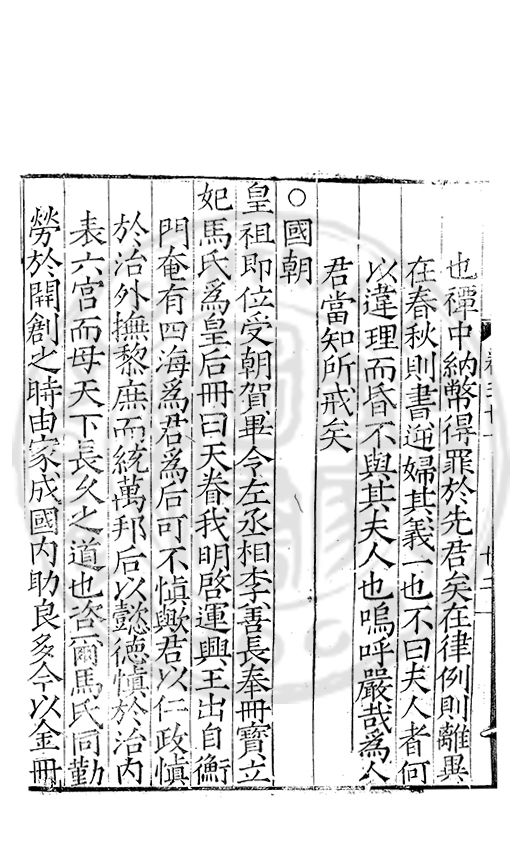 也禫中納幣得罪於先君矣在律例則離異
在春秋則書逆婦其義一也不曰夫人者何
以違理而昏不與其夫人也嗚呼嚴哉為人
君當知所戒矣
○國朝
皇祖即位受朝賀畢令左丞相李善長奉冊寶立
妃馬氏為皇后冊曰天眷我明啓運興王出自衡
門奄有四海為君為后可不慎歟君以仁政慎
於治外撫黎庶而統萬邦后以懿德慎於治内
表六宮而母天下長久之道也咨爾馬氏同勤
勞於開創之時由家成國内助良多今以金冊